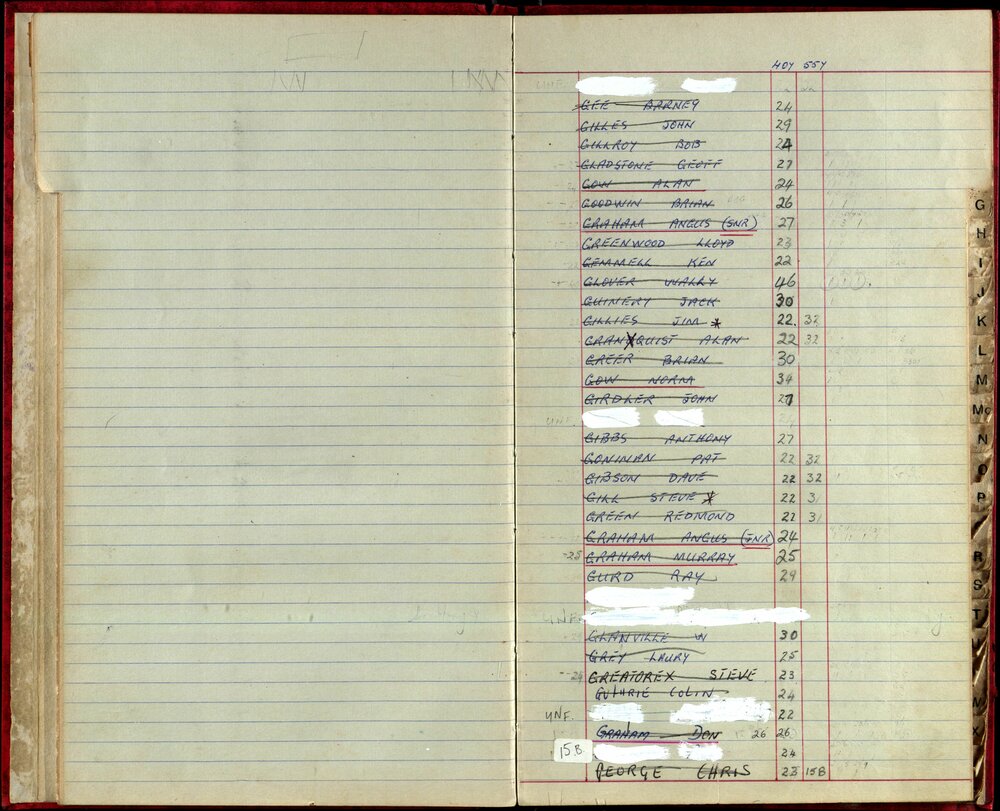 40Y 55Y
UNF.
GEE BARNEY 24
GILLES JOHN 29
GILLROY BOB 24
GLADSTONE GEOFF 27
GOW ALAN 24
GOODWIN BRIAN 26
GRAHAM ANGUS (SNR) 27
GREENWOOD LLOYD 23
GEMMELL KEN 22
GLOVER WALLY 46
GUINERY JACK 30
GILLIES JIM * 22. 32
GRANXQUIST ALAN 22 32
GREER BRIAN 30
GOW NORM 34
GIRDLER JOHN 27
UNF.
GIBBS ANTHONY 27
GONINAN PAT 22 32
GIBSON DAVE 22 32
GILL STEVE * 22 31
GREEN REDMOND 22 31
GRAHAM ANGUS (JNR) 24
-25 GRAHAM MURRAY 25
GURD RAY 29
UNF.
GLANVILLE W 30
GREY LAURY 25
--24 GREATOREX STEVE 23
GUTHRIE COLIN 24
UNF. 22
GRAHAM DON 26 26
15B. 24
GEORGE CHRIS 23 15B
G
H
I
J
K
L
M
Mc
N
O
P
R
S
T